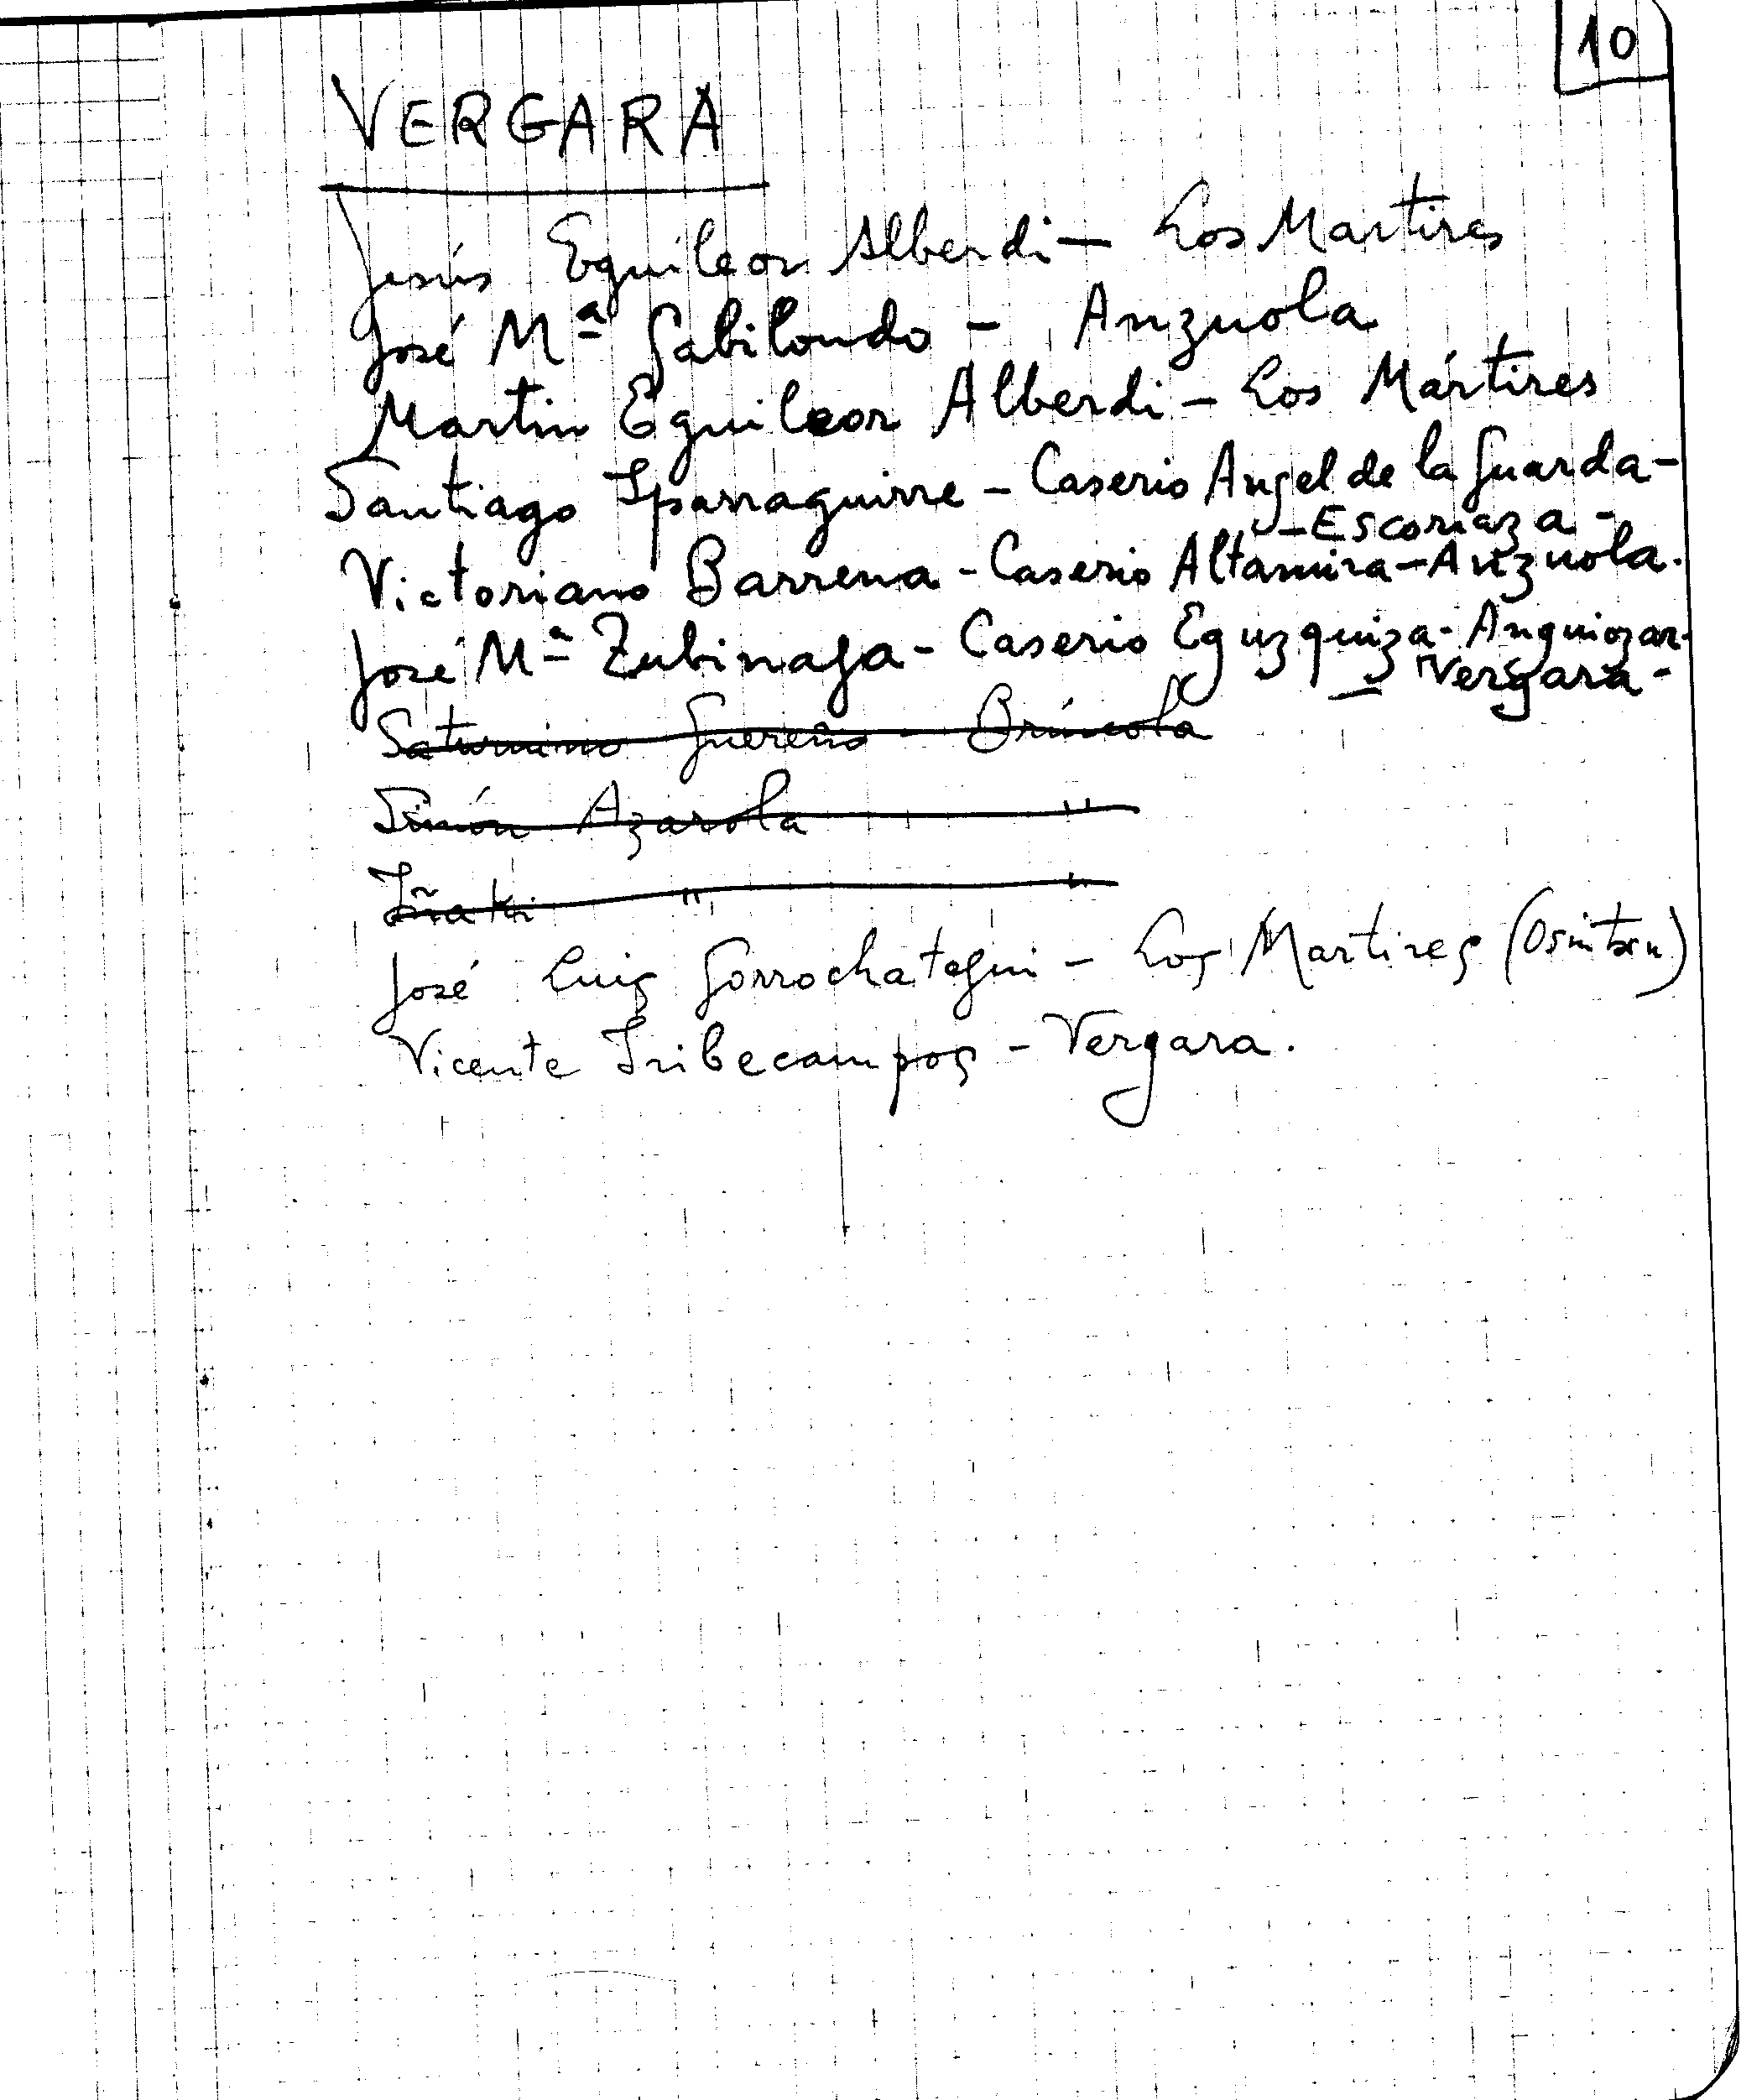 10
VERGARA
Jesús Eguileor Alberdi - Los Martires
José Mª Gabilondo - Anzuola
Martin Eguileor Alberdi - Los Mártires
Santiago Iparraguirre - Caserio Angel de la Guarda -
- Escoriaza -
Victoriano Barrena - Caserio Altamira - Anzuola.
José Mª Zubinaga - Caserio Eguzquiza - Anguiozar -
- Vergara -
Saturnino Guereño - Brincola
Simón Azarola "
Iñaki " "
José Luis Gorrochategui - Los Martires (Osintxu)
Vicente Iribecampos - Vergara.